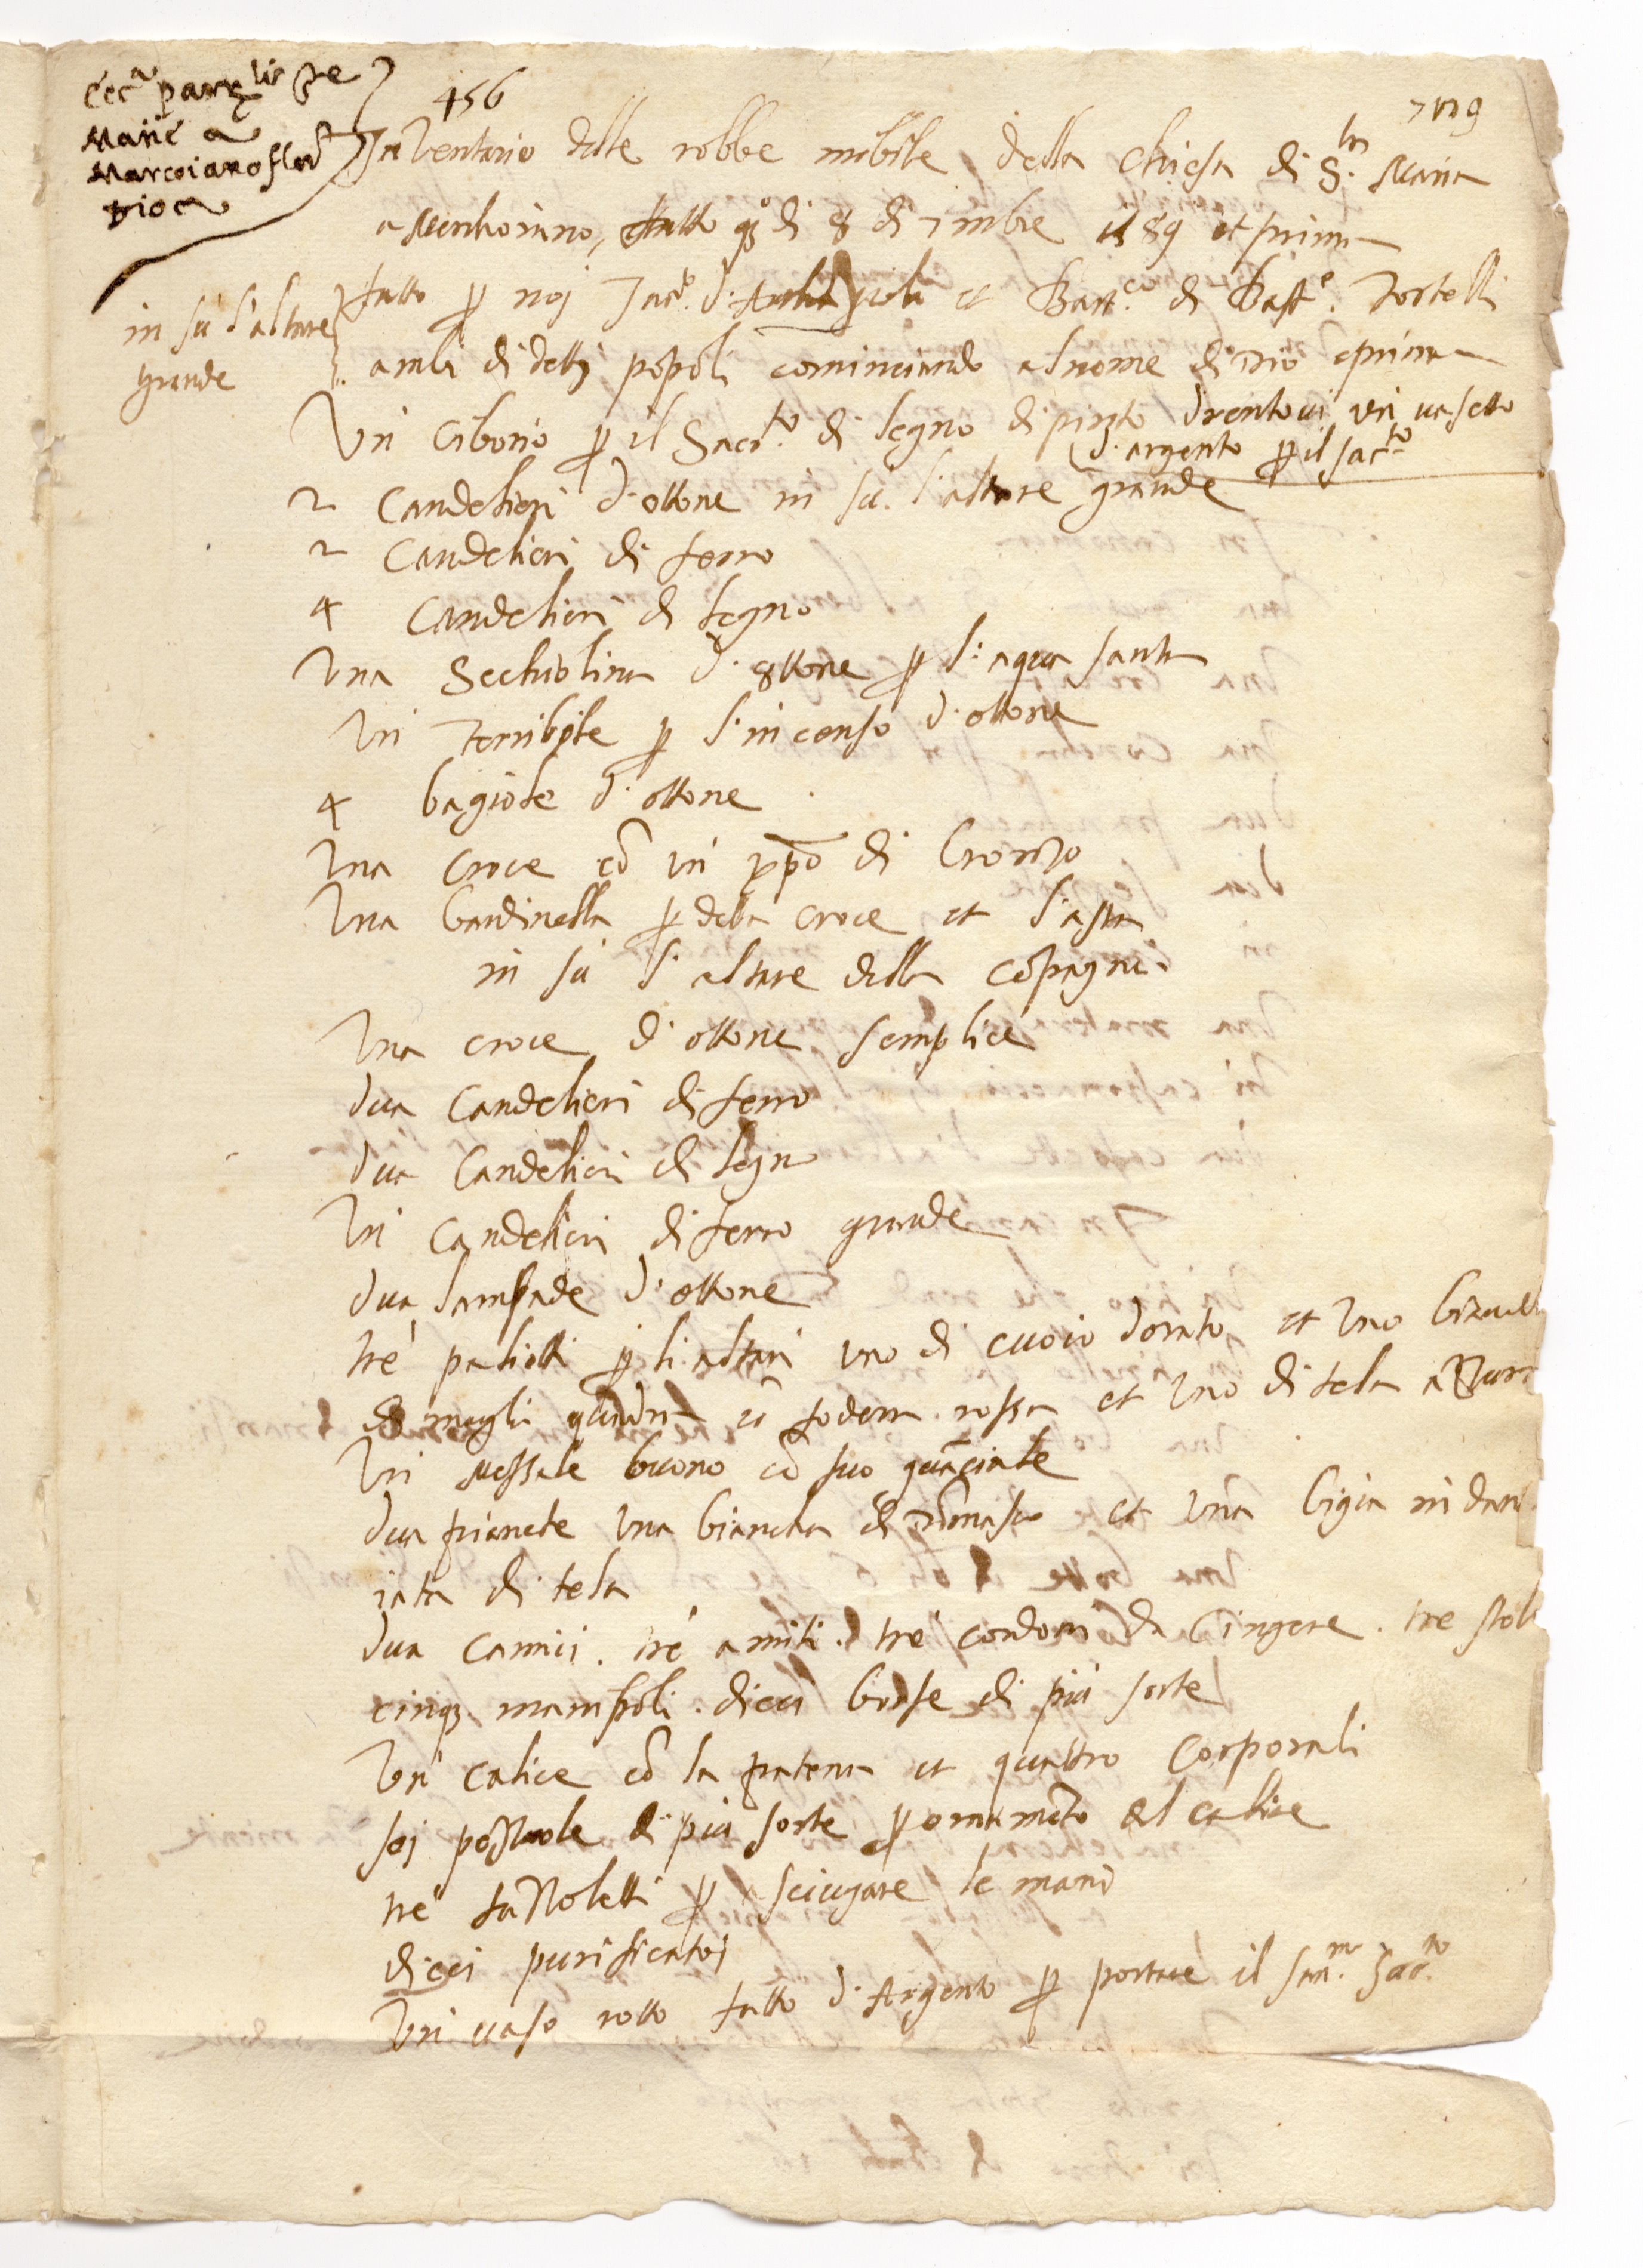 Ecc.a paroq.lis S.te
Marie a
Marcoiano flor.
Dioc.
456
Inventario delle robbe mobile della chiesa di S.ta Maria
a Marchoiano, fatto q.o di 8 di 7mbre 1589 et prima
in su l'altare
grande
fatto p noj Jac.o d' et Bart.o di Bast.o Tortelli
ambi di detti popoli cominciando al nome di Dio e prima
Un Ciborio p il Sacr.to di legno dipinto drentovi un vasetto
d'argento p il sac.to
2 Candelieri d'ottone in su l'altare grande
2 Candelieri di ferro
4 Candelieri di legno
Una Sechiolina d'ottone p l'aqua santa
Un terribile p l'incenso d'ottone
4 bagiole d'ottone
Una croce cō un xp̄o di bronzo
Una bandinella p detta croce et l'asta
in su l'altare della cōpagnia
Una croce d'ottone semplice
dua Candelieri di ferro
dua Candelieri di legno
Un Candelieri di ferro grande
dua lampade d'ottone
tre paliotti p li altari uno di cuoio dorato et uno
magli quadra cō fodera rossa et uno di tela azzurr
Un Messale buono cō suo guāciale
dua pianete una biancha di Domasco et una bigia in
iata di tela
dua camici . tre amiti . tre cordoni da cingere . tre stol
cinq; manipoli . dieci borse di più sorte
Un calice cō la patena et quattro corporali
sej pezzuole di più sorte p ornamēto del calice
tre fazzoletti p sciugare le mani
dieci purificatoj
Un vaso rotto fatto d'Argento p portare il San.mo Sacr.to